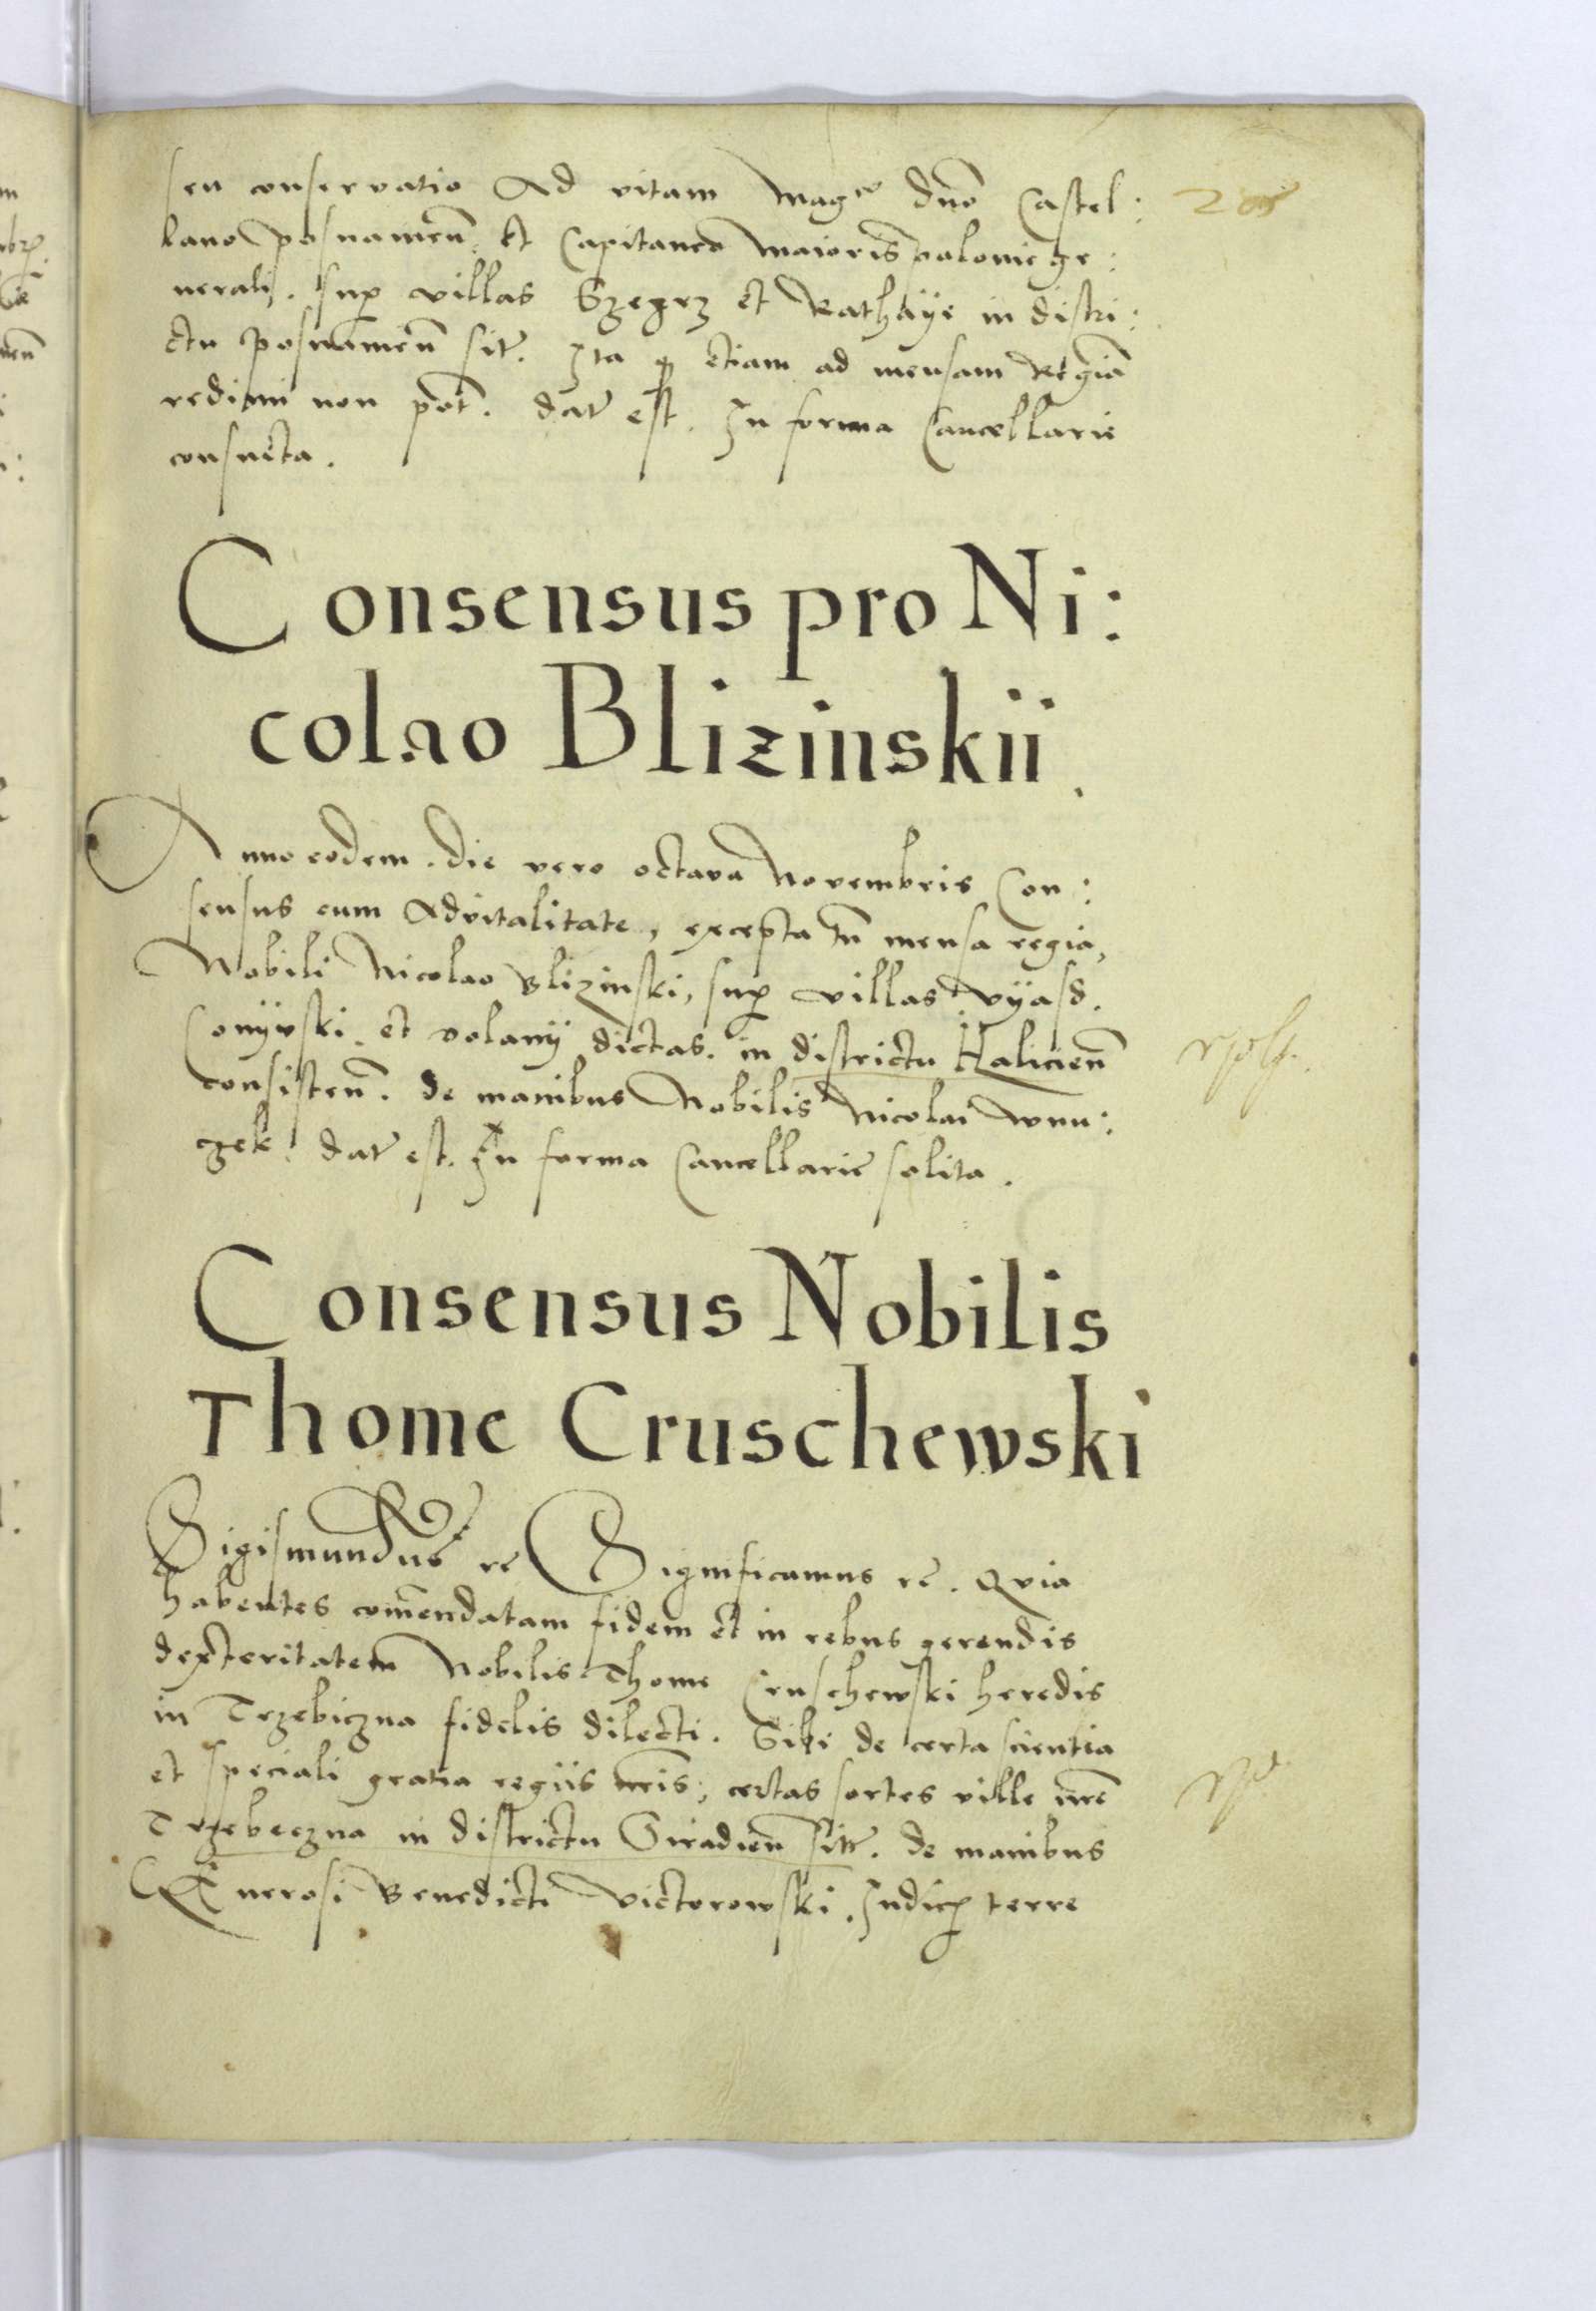 seu conservatio Ad vitam Magco dno Castel:
lano posnanien̄. et Capitaneo maioris polonie ge:
nerali. sup villas Szegrz et Rathaÿe in distri:
ctu posnanien̄ sit̄. Ita ꝙ etiam ad mensam Regiā
redimi non pot̄. dat̄ est. In forma Cancellarie
consueta.
Consensus pro Ni:
colao Blizinskii.
Anno eodem. die vero octava Novembris Con:
sensus cum Advitalitate, excepta tn̄ mensa regia,
Nobili Nicolao Blizinski, sup villas Vÿasd.
Conÿvski et volanÿ dictas. in districtu Halicien̄
consisten̄. de manibus Nobilis Nicolai Wnu:
czek. dat̄ est. In forma Cancellarie solita.
Consensus Nobilis
Thome Cruschewski
Sigismundus rc̄ Significamus rc̄. Qvia
habentes com̄endatam fidem et in rebus gerendis
dexteritatem Nobilis Thome Cruschewski heredis
in Trzebiczna fidelis dilecti. Sibi de certa scientia
et speciali gratia regiis nr̄is; certas sortes ville nr̄e
Trzebeczna in districtu Siradien̄ sitt̄. de manibus
Generosi Benedicti Victorowski. Iudicis terre